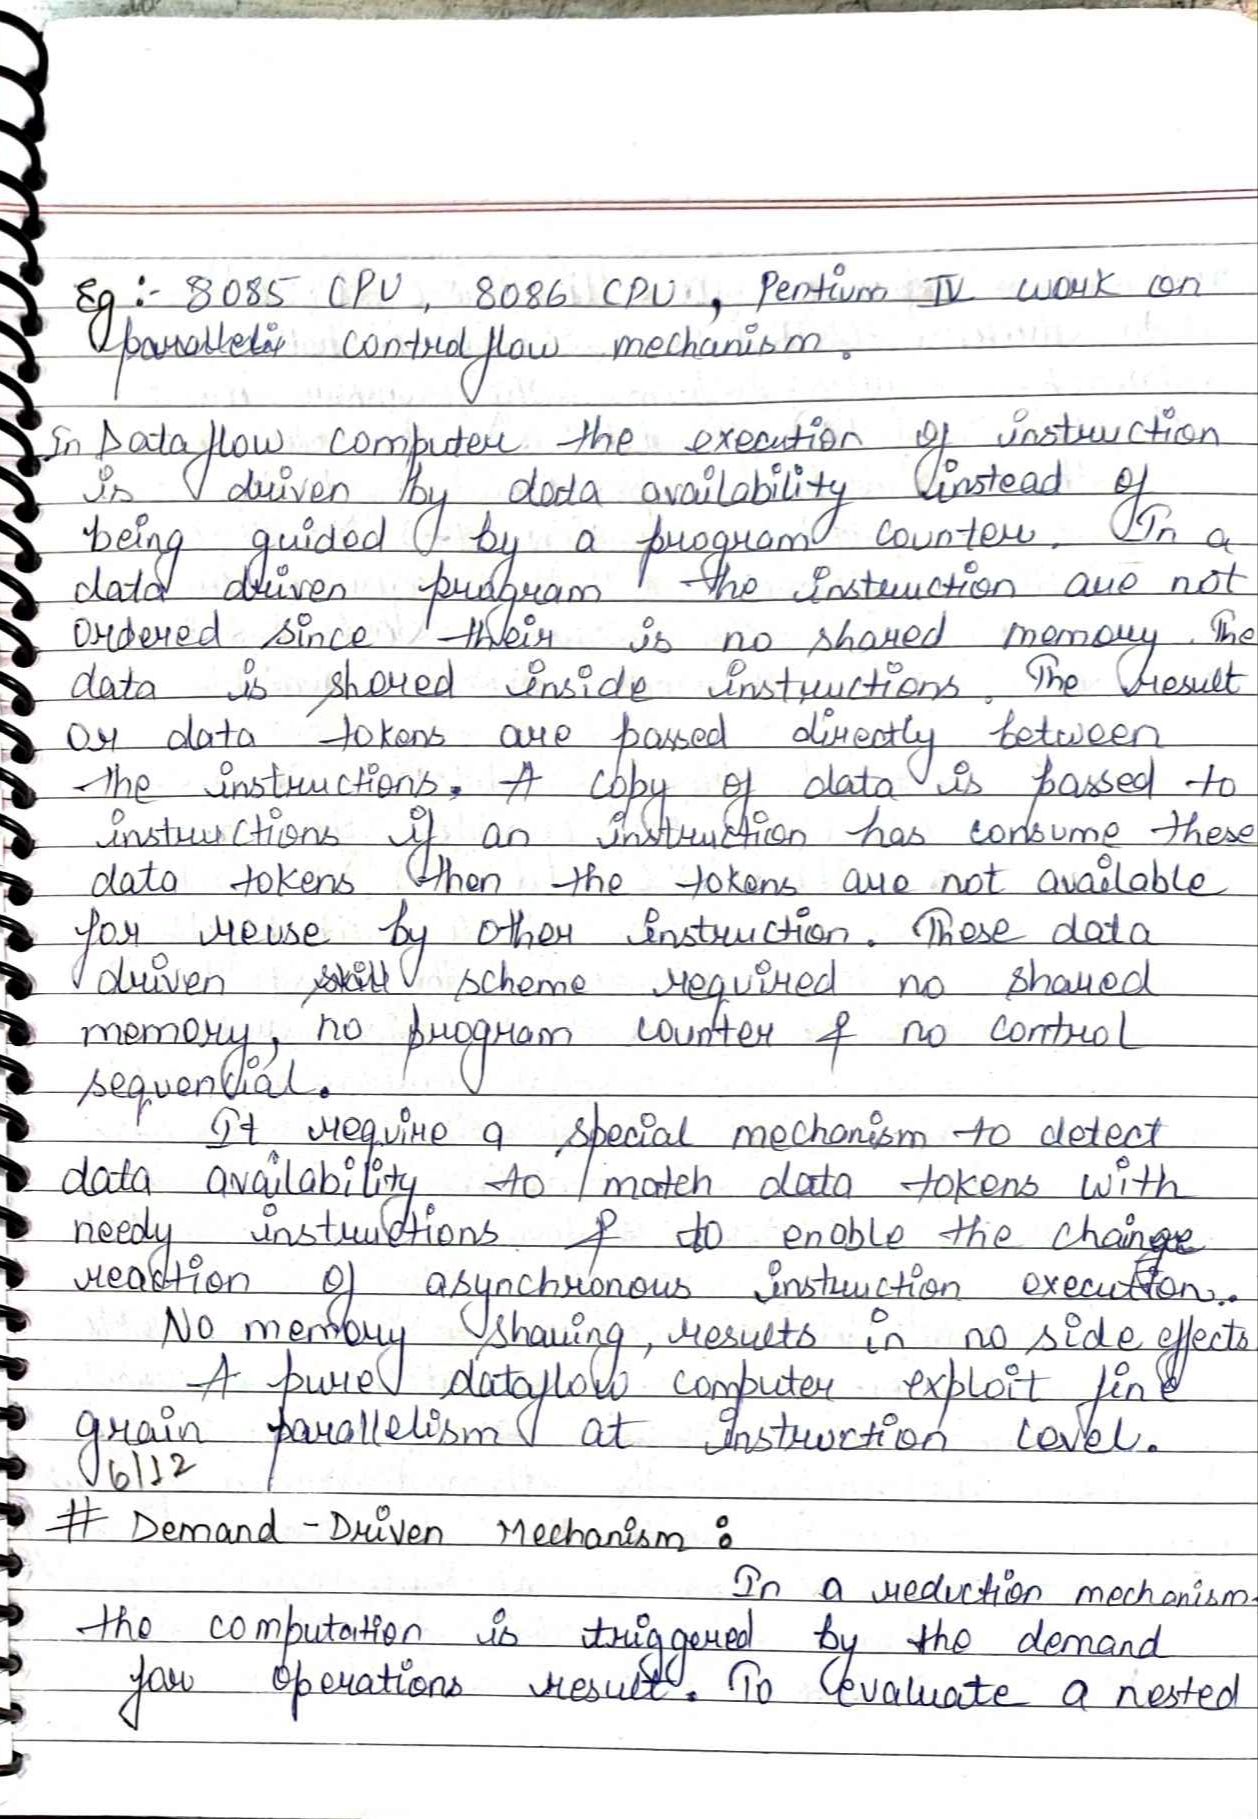 Eg :- 8085 CPU, 8086 CPU, Pentium IV work on
control flow mechanism.
In Dataflow computer the execution of instruction
is driven by data availability instead of
being guided by a program counter. In a
data driven program the instruction are not
ordered since their is no shared memory. The
data is shared inside instructions. The result
or data tokens are passed directly between
the instructions. A copy of data is passed to
instructions if an instruction has consume these
data tokens then the tokens are not available
for reuse by other instruction. These data
driven scheme required no shared
memory, no program counter & no control
sequential.
It require a special mechanism to detect
data availability to match data tokens with
needy instructions & to enable the change
reaction of asynchronous instruction execution.
No memory sharing, results in no side effects
A pure dataflow computer exploit fine
grain parallelism at instruction level.
6/12
# Demand-Driven Mechanism :
In a reduction mechanism
the computation is triggered by the demand
for operations result. To evaluate a nested